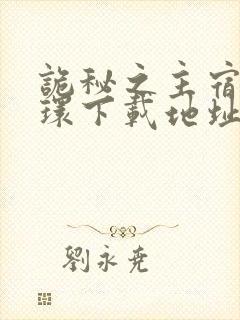 詭秘之主宿
環下載地址
劉永堯